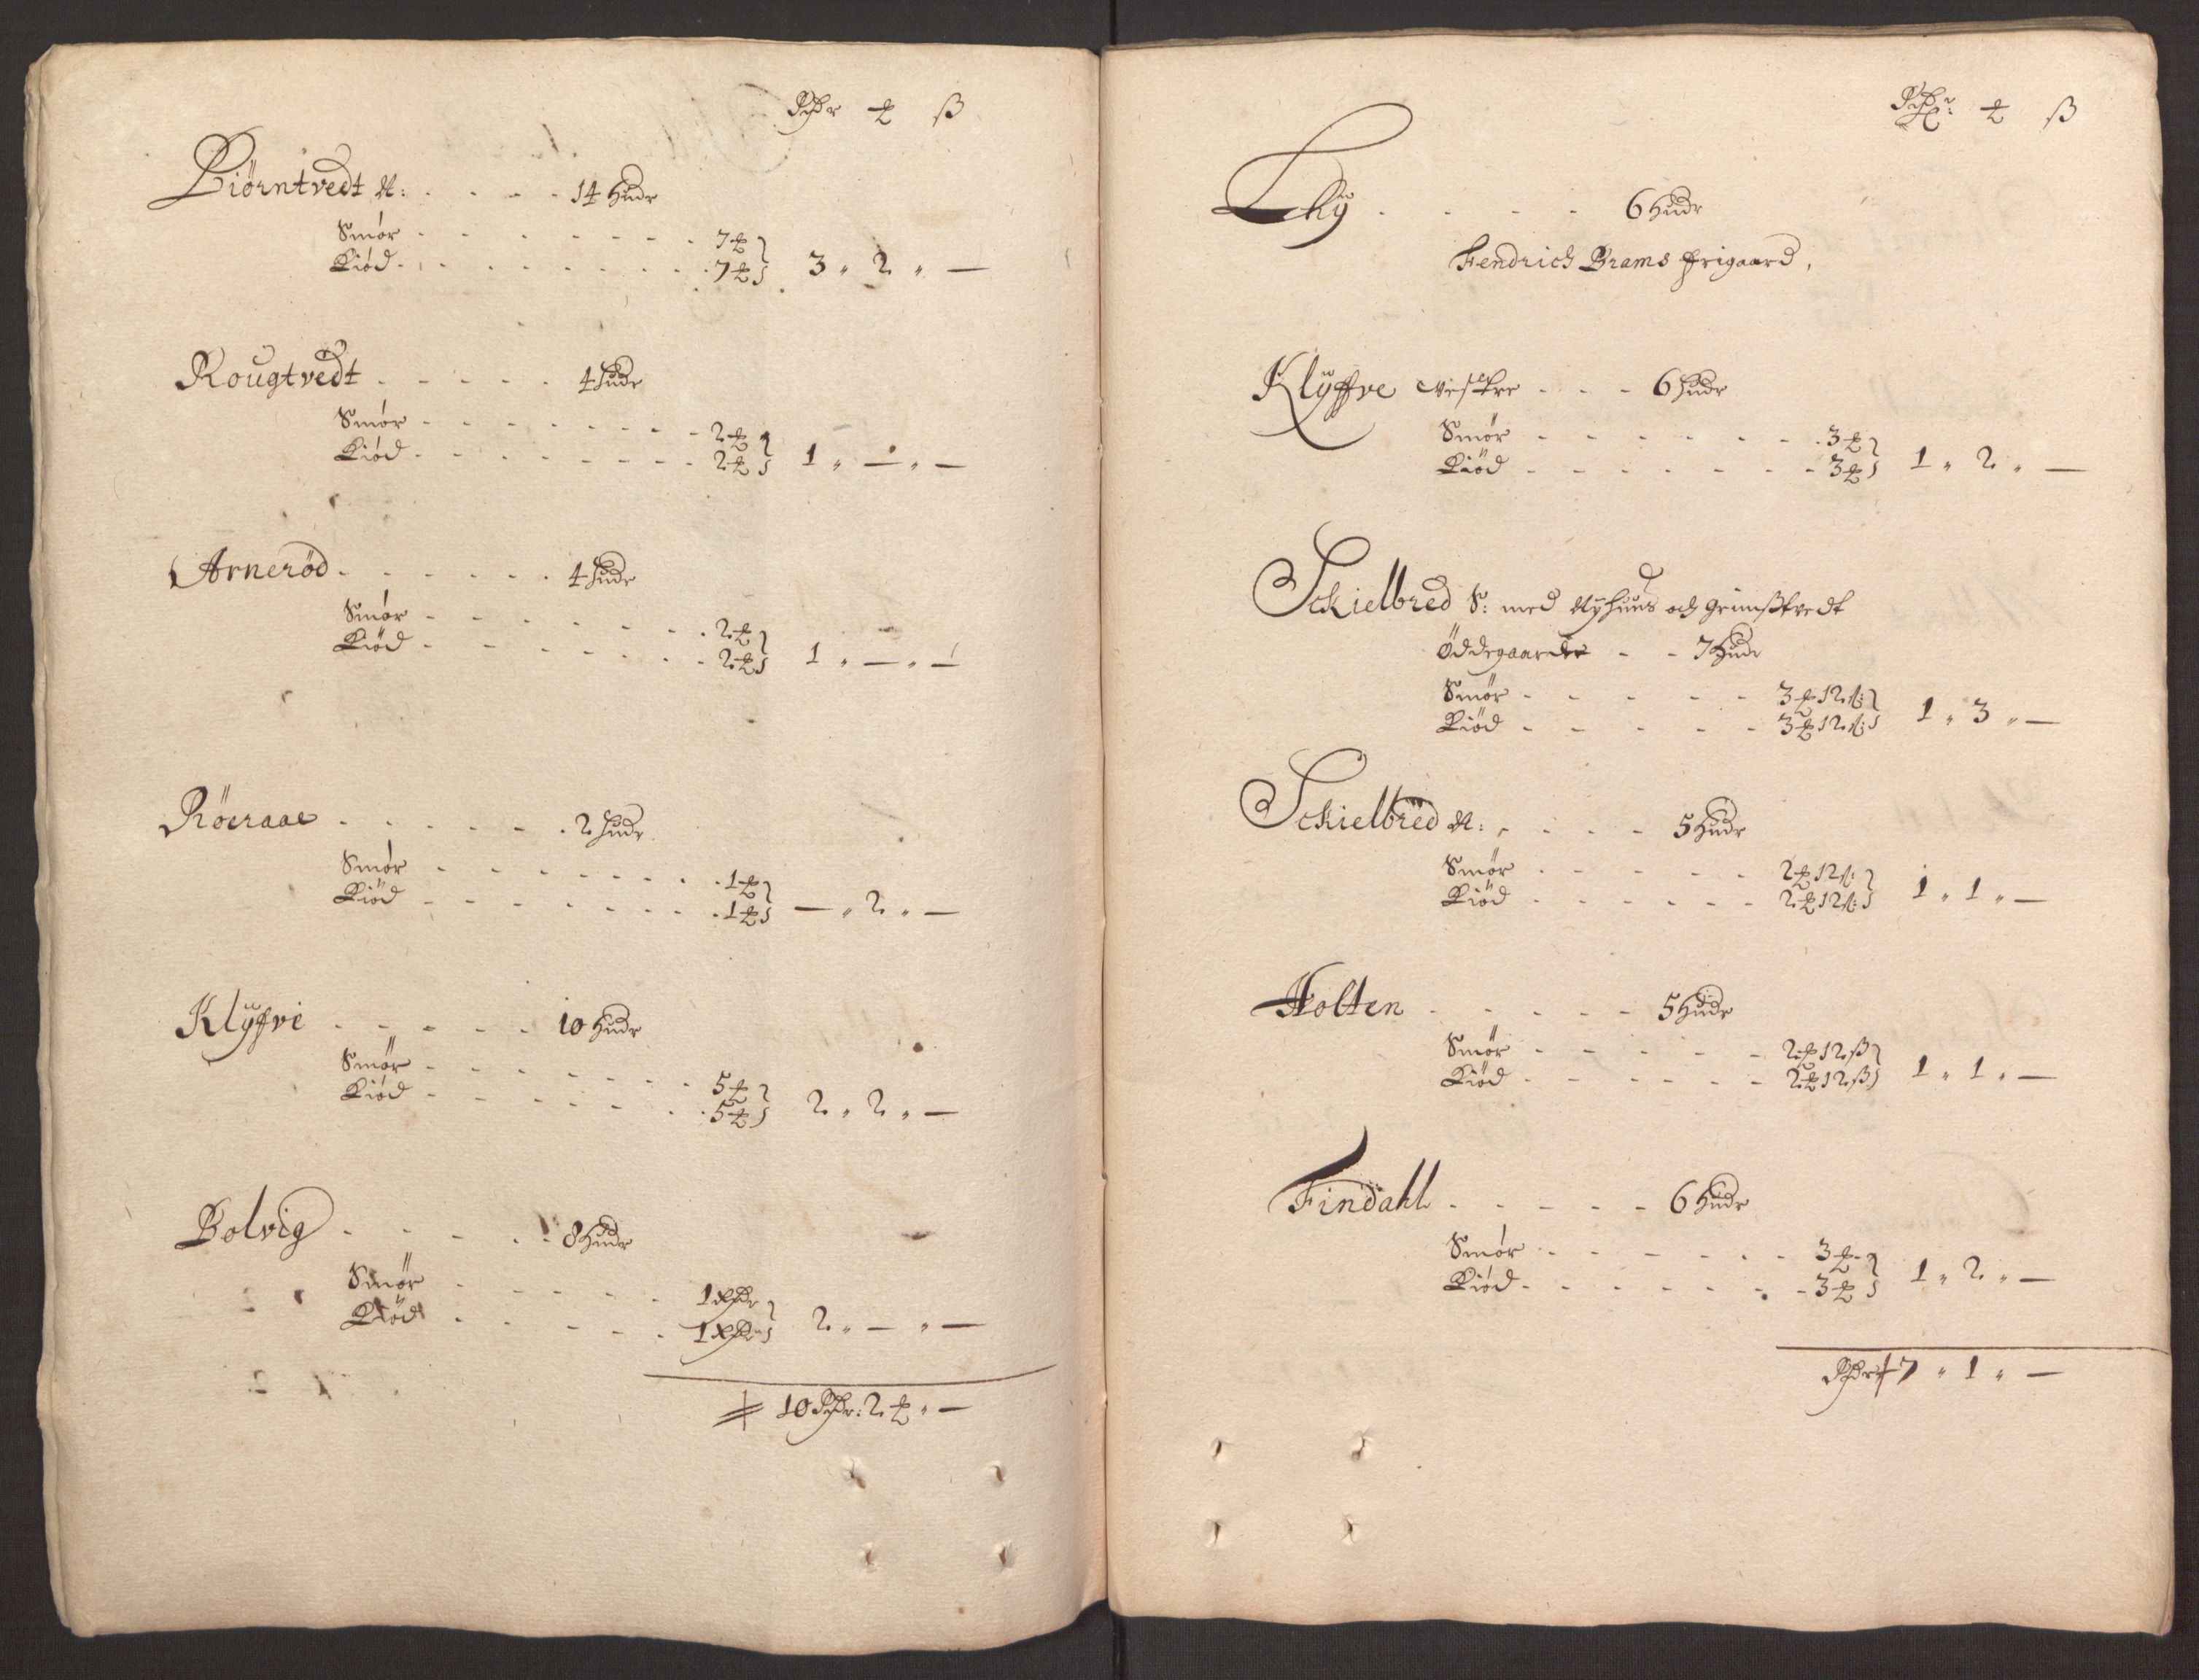 Rdr ꝉ ß
Biörntvedt N: - - - - 14 Hudr
Smör - - - - - - 7 ꝉ
Kiöd - - - - - - 7 ꝉ 3 " 2 " —
Rougtvedt - - - - - 4 Hudr
Smör - - - - - - 2 ꝉ
Kiöd - - - - - - 2 ꝉ 1 " — " —
Arneröd - - - - - - 4 Hudr
Smör - - - - - - 2 ꝉ
Kiöd - - - - - - 2 ꝉ 1 " — " —
Röeraae - - - - - 2 Hudr
Smör - - - - - - 1 ꝉ
Kiöd - - - - - - 1 ꝉ — " 2 " —
Klÿfve - - - - - 10 Hudr
Smör - - - - - - 5 ꝉ
Kiöd - - - - - - 5 ꝉ 2 " 2 " —
Bolvig - - - - - 8 Hudr
Smör - - - - - 1
Kiöd - - - - - 1 2 " — " —
10 Rdr: 2 ꝉ " —
Rdr: ꝉ ß
Lhÿ - - - - 6 Hudr
Fendrich Brams frigaard,
Klÿffve vestre - - - 6 Hudr
Smör - - - - - - 3 ꝉ
Kiöd - - - - - - 3 ꝉ 1 " 2 " —
Schielbred S: med Nÿhuus och Grimßtvedt
Öddegaarder - - 7 Hudr
Smör - - - - - 3 ꝉ 12 ß:
Kiöd - - - - - 3 ꝉ 12 ß: 1 " 3 " —
Schielbred N: - - - - 5 Hudr
Smör - - - - - 2 ꝉ 12 ß:
Kiöd - - - - - 2 ꝉ 12 ß: 1 " 1 " —
Holten - - - - - 5 Hudr
Smör - - - - - 2 ꝉ 12 ß
Kiöd - - - - - 2 ꝉ 12 ß 1 " 1 " —
Findahl - - - - - 6 Hudr
Smör - - - - - 3 ꝉ
Kiöd - - - - - 3 ꝉ 1 " 2 " —
Rdr 7 " 1 " —